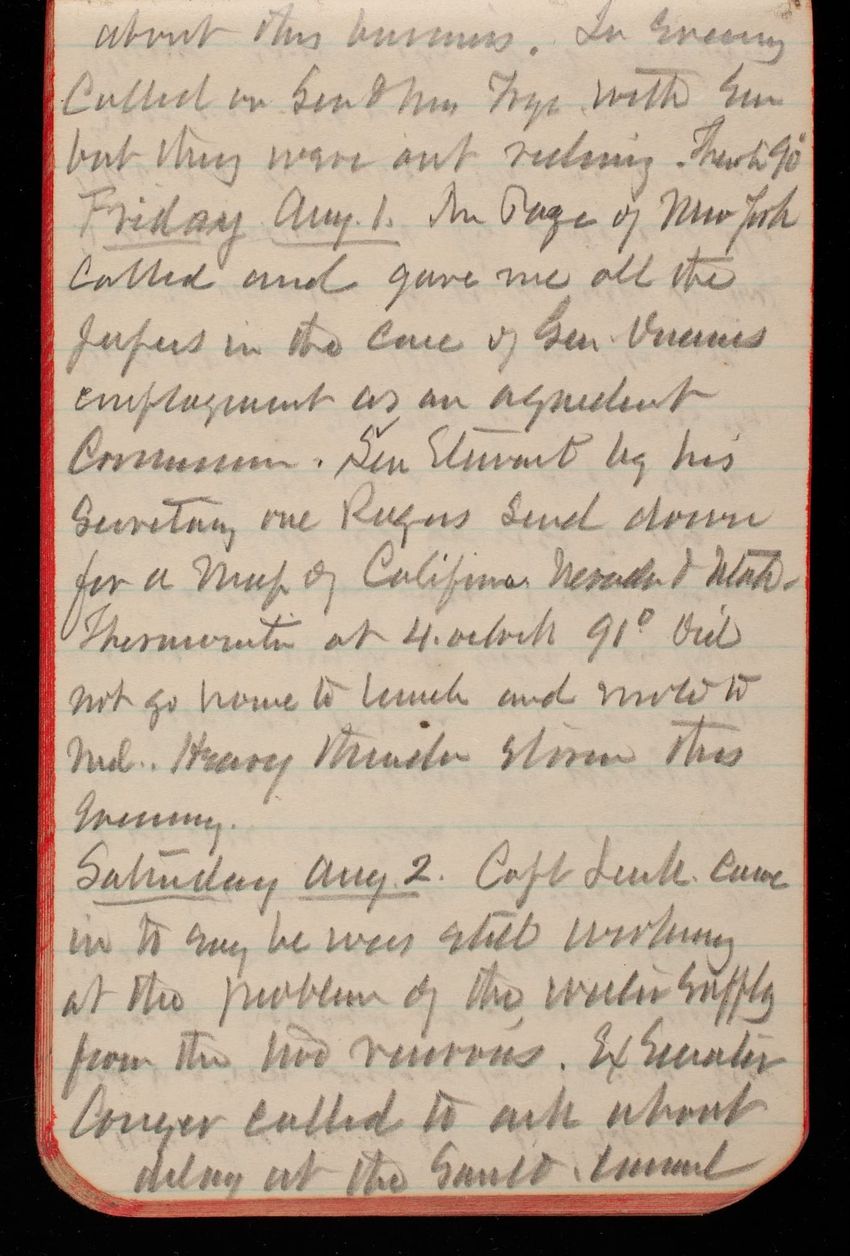 about this business. In Evening
Called on Gen & Mrs with Em
but they were out riding. Ther 90°
Friday Aug. 1. Mr Page of New York
called and gave me all the
papers in the case of Gen
employment as an aqueduct
Commission. Sen Stewart by his
Secretary one send down
for a Map of California Nevada & Utah.
Thermometer at 4. oclock 91° Did
not go home to lunch and wrote to
Ned.. Heavy thunder storm this
Evening.
Saturday Aug. 2. Capt came
in to say he was still working
at the problem of the water supply
from the two reservoirs. Ex Senator
Conger called to ask about
delay at the Sault. Canal